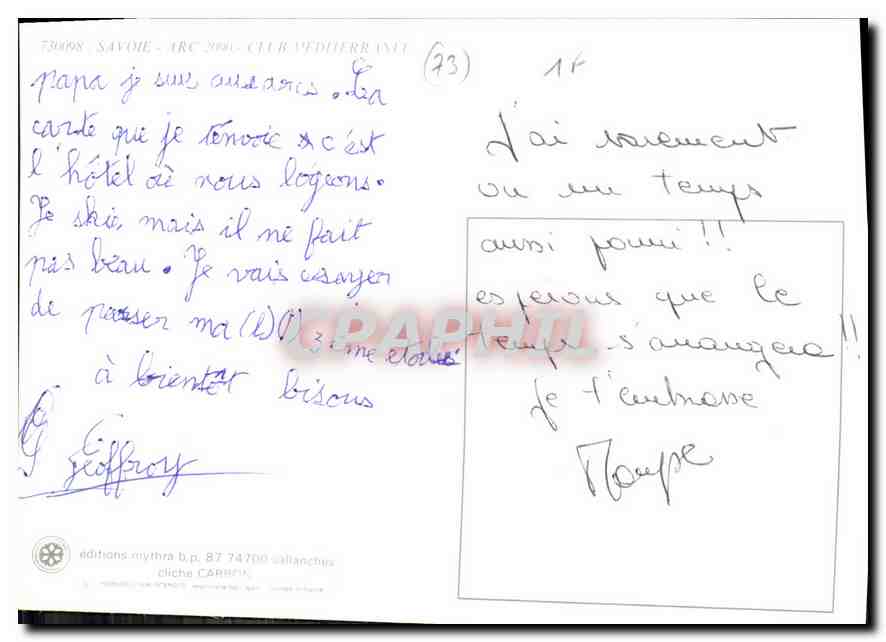 730098 - SAVOIE - ARC 2000 - CLUB MEDITERRANEE
(73)
1F
papa je suis aux arcs. La
carte que je t'envoie c'est
l'hôtel où nous logeons.
Je skie, mais il ne fait
pas beau. Je vais essayer
de passer ma (l)(l) 3ième étoile
à bientôt bisous
G
Geoffroy
J'ai rarement
vu un temps
aussi pourri !!
espérons que le
temps s'arrangera !!
je t'embrasse
éditions mythra b.p. 87 74700 sallanches
cliche CARRON
CPAPHIL